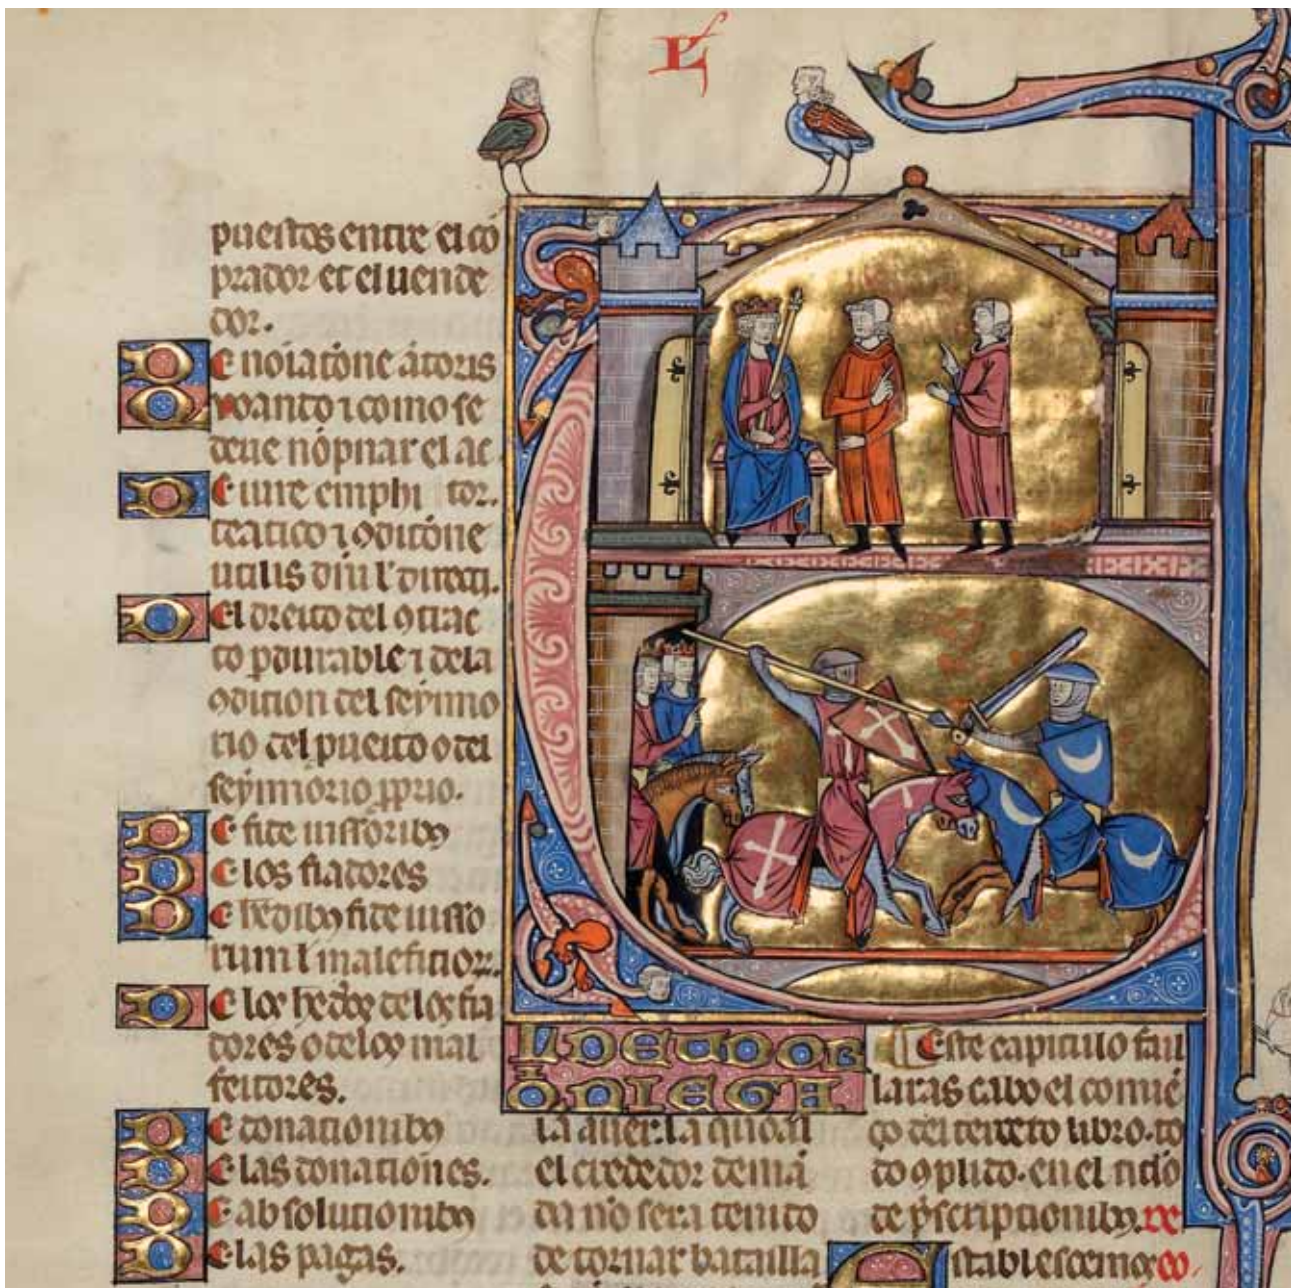 puestos entre el cõ
prador et el uende
dor.
De noĩatõne actoris
quanto ⁊ como se
deue nõpnar el ac
De iure emphi tor.
teatico ⁊ ꝯditõne
utilis dñi l̕ directi.
Del dreito del ꝯtrac
to ꝑdurable ⁊ de la
ꝯdition del seynno
rio del pueito o del
seynnorio ꝓprio.
De fide iussoribꝫ
De los fiadores
De hedibꝫ fide iusso
rum l̕ maleficioꝝ.
De los hedos de los fia
dores o de los mal
feitores.
De donationibꝫ
De las donationes.
De absolutionibꝫ
De las pagas.
EL DEUDOR
NIEGA
la auer. la quoal
el crededor demã
da nõ sera tenido
de tornar batailla
Este capitulo fail
laras cabo el comẽ
ço del terceto libro. to
do ꝯplido. en el titlo
de pͥscriptionibꝫ.
Establescemos